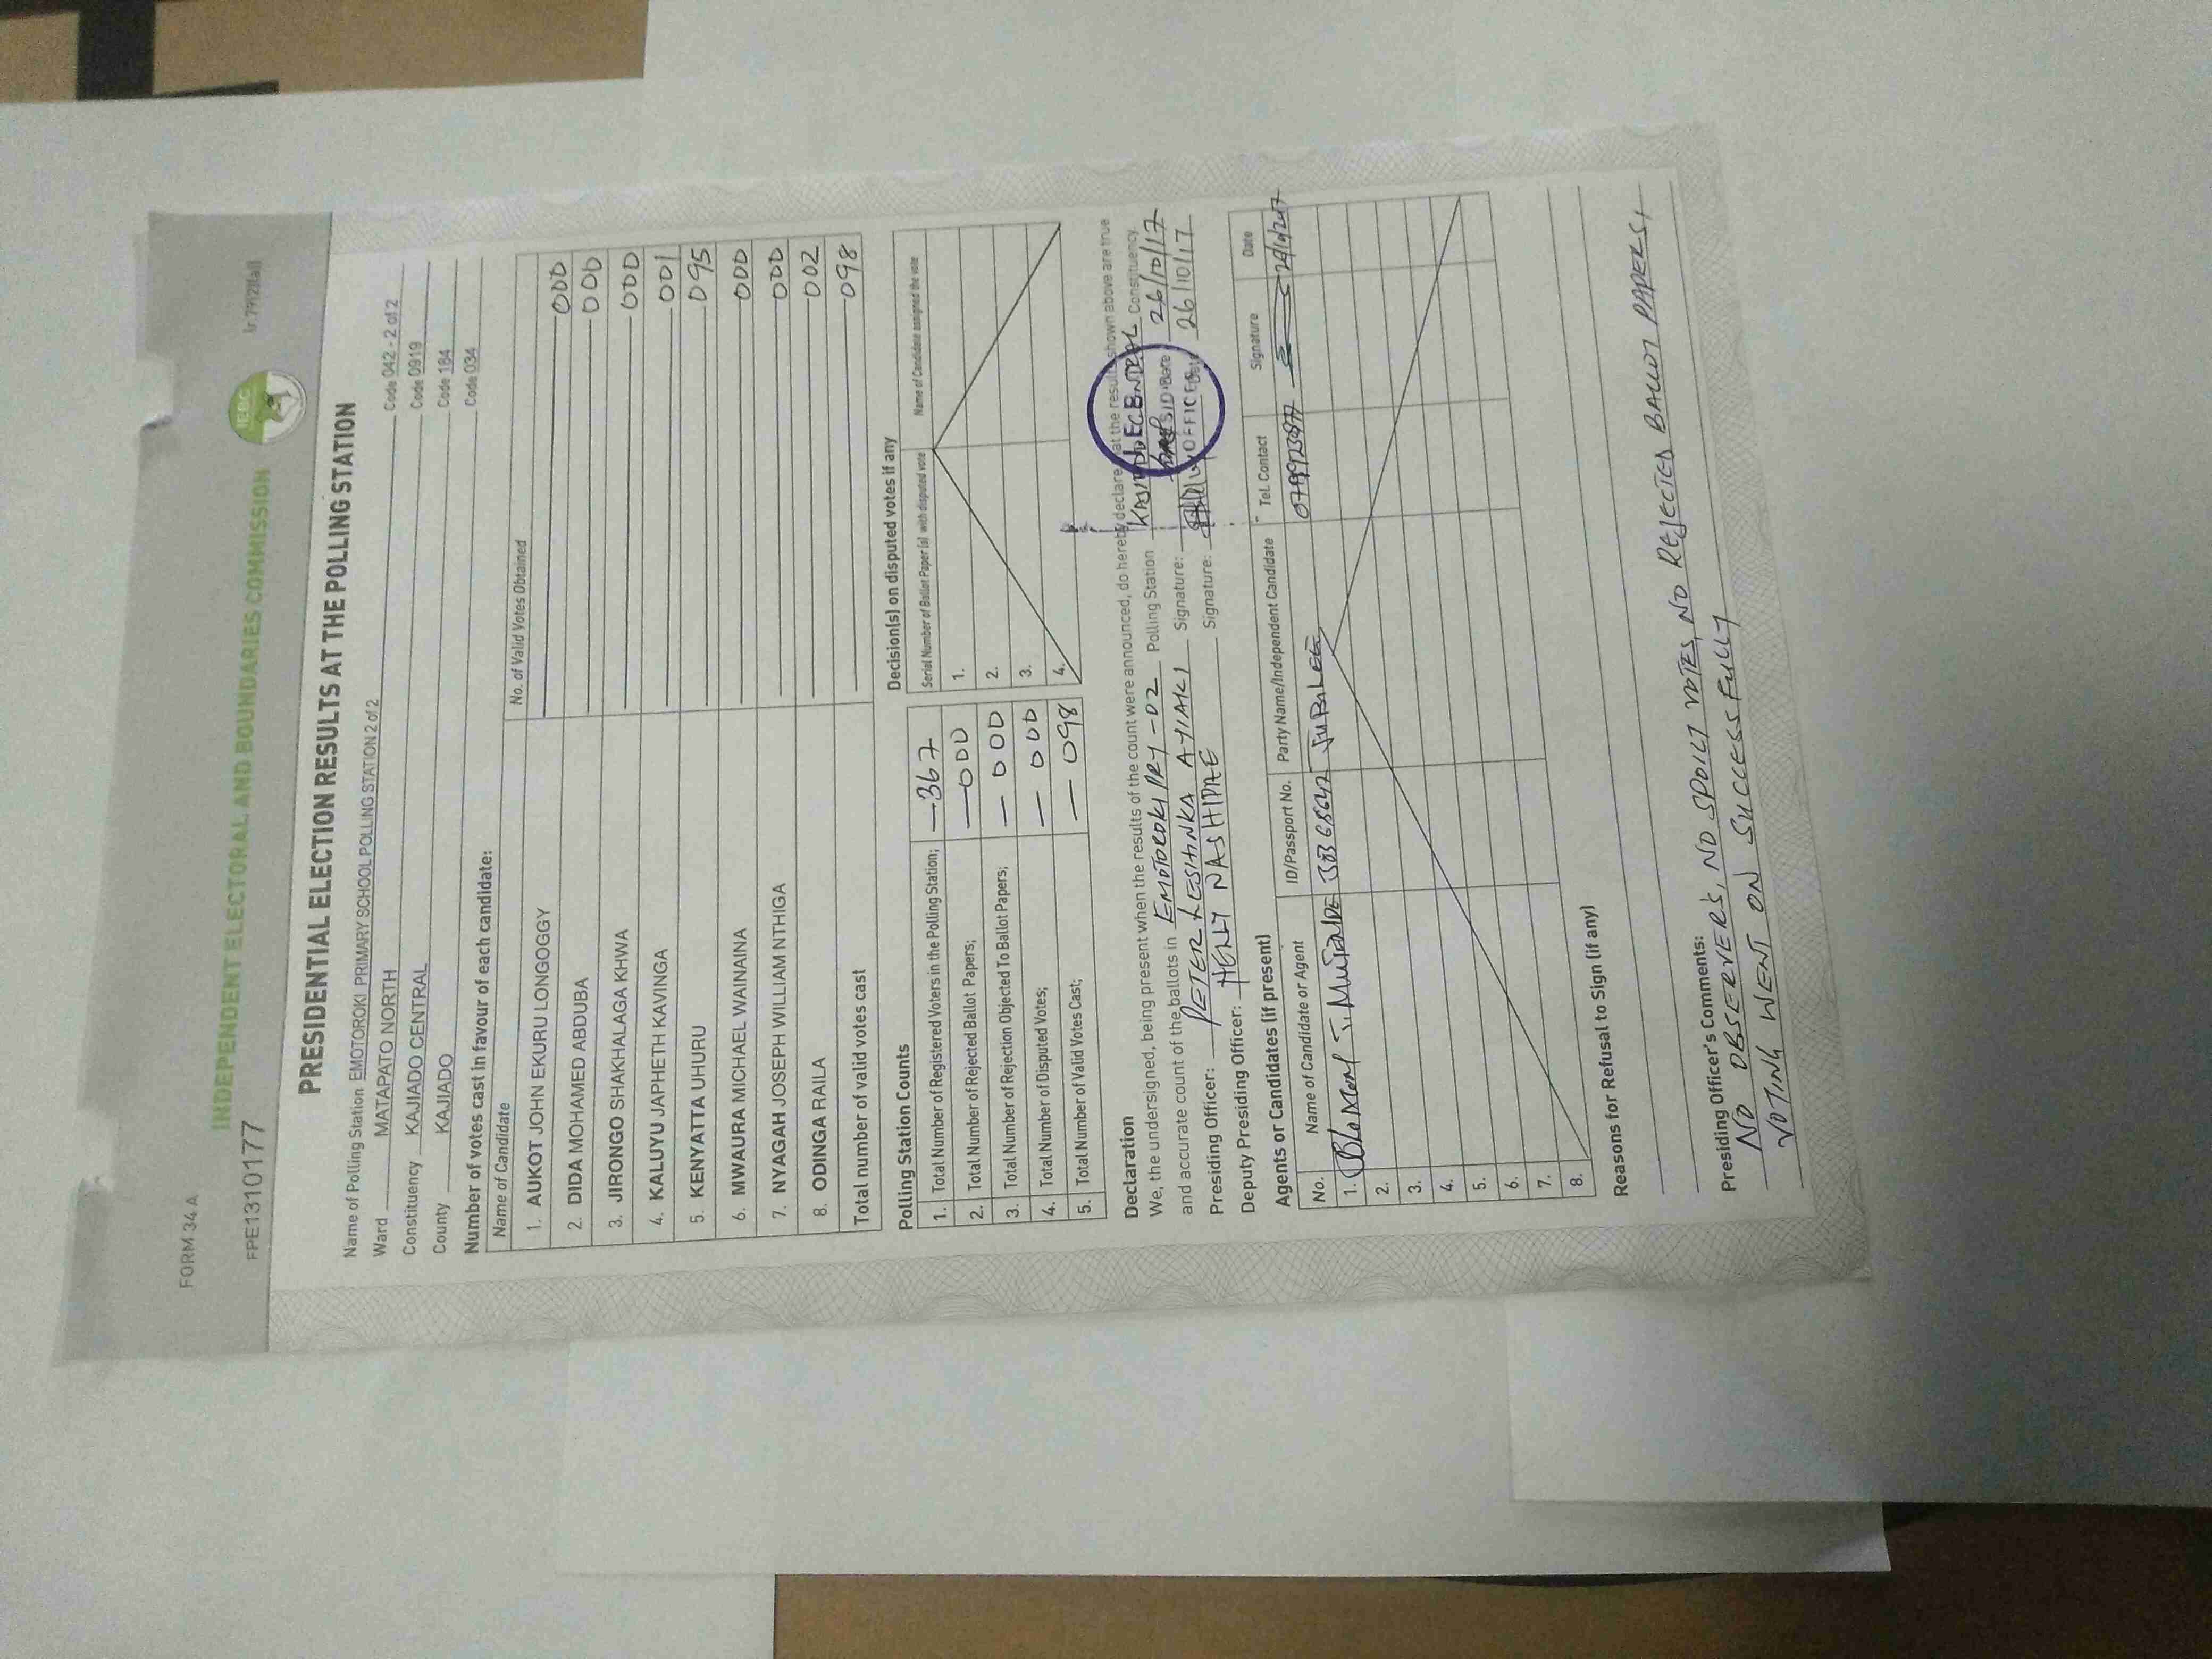 FORM 34 A
FPE1310177
INDEPENDENT ELECTORAL AND BOUNDARIES COMMISSION
IEBC
PRESIDENTIAL ELECTION RESULTS AT THE POLLING STATION
Name of Polling Station EMOTOROKI PRIMARY SCHOOL POLLING STATION 2 of 2 Code 042 - 2 of 2
Ward MATAPATO NORTH Code 0919
Constituency KAJIADO CENTRAL Code 184
County KAJIADO Code 034
Number of votes cast in favour of each candidate:
Name of Candidate No. of Valid Votes Obtained
1. AUKOT JOHN EKURU LONGOGGY 000
2. DIDA MOHAMED ABDUBA 000
3. JIRONGO SHAKHALAGA KHWA 000
4. KALUYU JAPHETH KAVINGA 001
5. KENYATTA UHURU 095
6. MWAURA MICHAEL WAINAINA 000
7. NYAGAH JOSEPH WILLIAM NTHIGA 000
8. ODINGA RAILA 002
Total number of valid votes cast 098
Polling Station Counts
1. Total Number of Registered Voters in the Polling Station; 367
2. Total Number of Rejected Ballot Papers; 000
3. Total Number of Rejection Objected To Ballot Papers; 000
4. Total Number of Disputed Votes; 000
5. Total Number of Valid Votes Cast; 098
Decision(s) on disputed votes if any
Serial Number of Ballot Paper (s) with disputed vote Name of Candidate assigned the vote
1.
2.
3.
4.
Declaration
We, the undersigned, being present when the results of the count were announced, do hereby declare that the results shown above are true
and accurate count of the ballots in EMOTOROKI PRY - 02 Polling Station KAJIADO CENTRAL Constituency.
Presiding Officer: PETER LESHINKA Signature: Date 26/10/17
Deputy Presiding Officer: HELLY NASHIPAE Signature: Date 26/10/17
Agents or Candidates (if present)
No. Name of Candidate or Agent ID/Passport No. Party Name/Independent Candidate Tel. Contact Signature Date
1. JUBILEE
2.
3.
4.
5.
6.
7.
8.
Reasons for Refusal to Sign (if any)
Presiding Officer's Comments:
NO OBSERVERS, NO SPOILT VOTES, NO REJECTED BALLOT PAPERS,
VOTING WENT ON SUCCESSFULLY